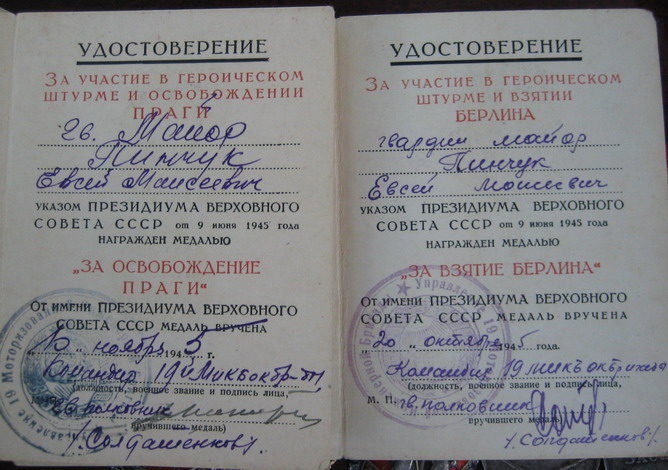 УДОСТОВЕРЕНИЕ
ЗА УЧАСТИЕ В ГЕРОИЧЕСКОМ
ШТУРМЕ И ОСВОБОЖДЕНИИ
ПРАГИ
Гв. Майор
Пинчук
Евсей Маисеевич
УКАЗОМ ПРЕЗИДИУМА ВЕРХОВНОГО
СОВЕТА СССР от 9 июня 1945 года
НАГРАЖДЕН МЕДАЛЬЮ
„ЗА ОСВОБОЖДЕНИЕ
ПРАГИ“
От имени ПРЕЗИДИУМА ВЕРХОВНОГО
СОВЕТА СССР МЕДАЛЬ ВРУЧЕНА
ноября 1945 г.
Командир 19й
(должность, военное звание и подпись лица,
М. П. Гв. полковник
вручившего медаль)
/Солдашенков/
УДОСТОВЕРЕНИЕ
ЗА УЧАСТИЕ В ГЕРОИЧЕСКОМ
ШТУРМЕ И ВЗЯТИИ
БЕРЛИНА
гвардии майор
Пинчук
Евсей Моисеевич
УКАЗОМ ПРЕЗИДИУМА ВЕРХОВНОГО
СОВЕТА СССР от 9 июня 1945 года
НАГРАЖДЕН МЕДАЛЬЮ
„ЗА ВЗЯТИЕ БЕРЛИНА“
От имени ПРЕЗИДИУМА ВЕРХОВНОГО
СОВЕТА СССР МЕДАЛЬ ВРУЧЕНА
„20 октября 1945 года.
Командир 19
(должность, военное звание и подпись лица,
М. П. гв. полковник
вручившего медаль)
/Солдашенков/